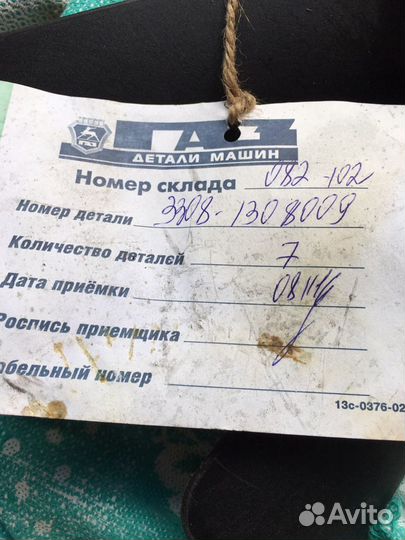 ГАЗ
ДЕТАЛИ МАШИН
Номер склада 082-102
Номер детали 3308-1308009
Количество деталей 7
Дата приёмки
Роспись приемщика
обельный номер
13с-0376-02
Avito